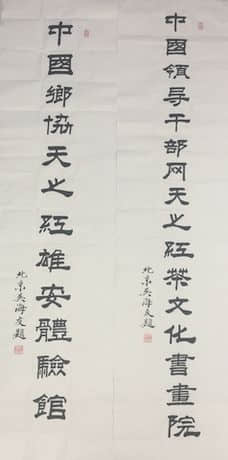 中國領导干部网天之红茶文化書畫院
北京吴海友題
中國鄉協天之紅雄安體驗館
北京吴海友題